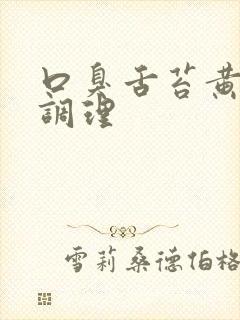 口臭舌苔黃
調理
雪莉桑德伯格